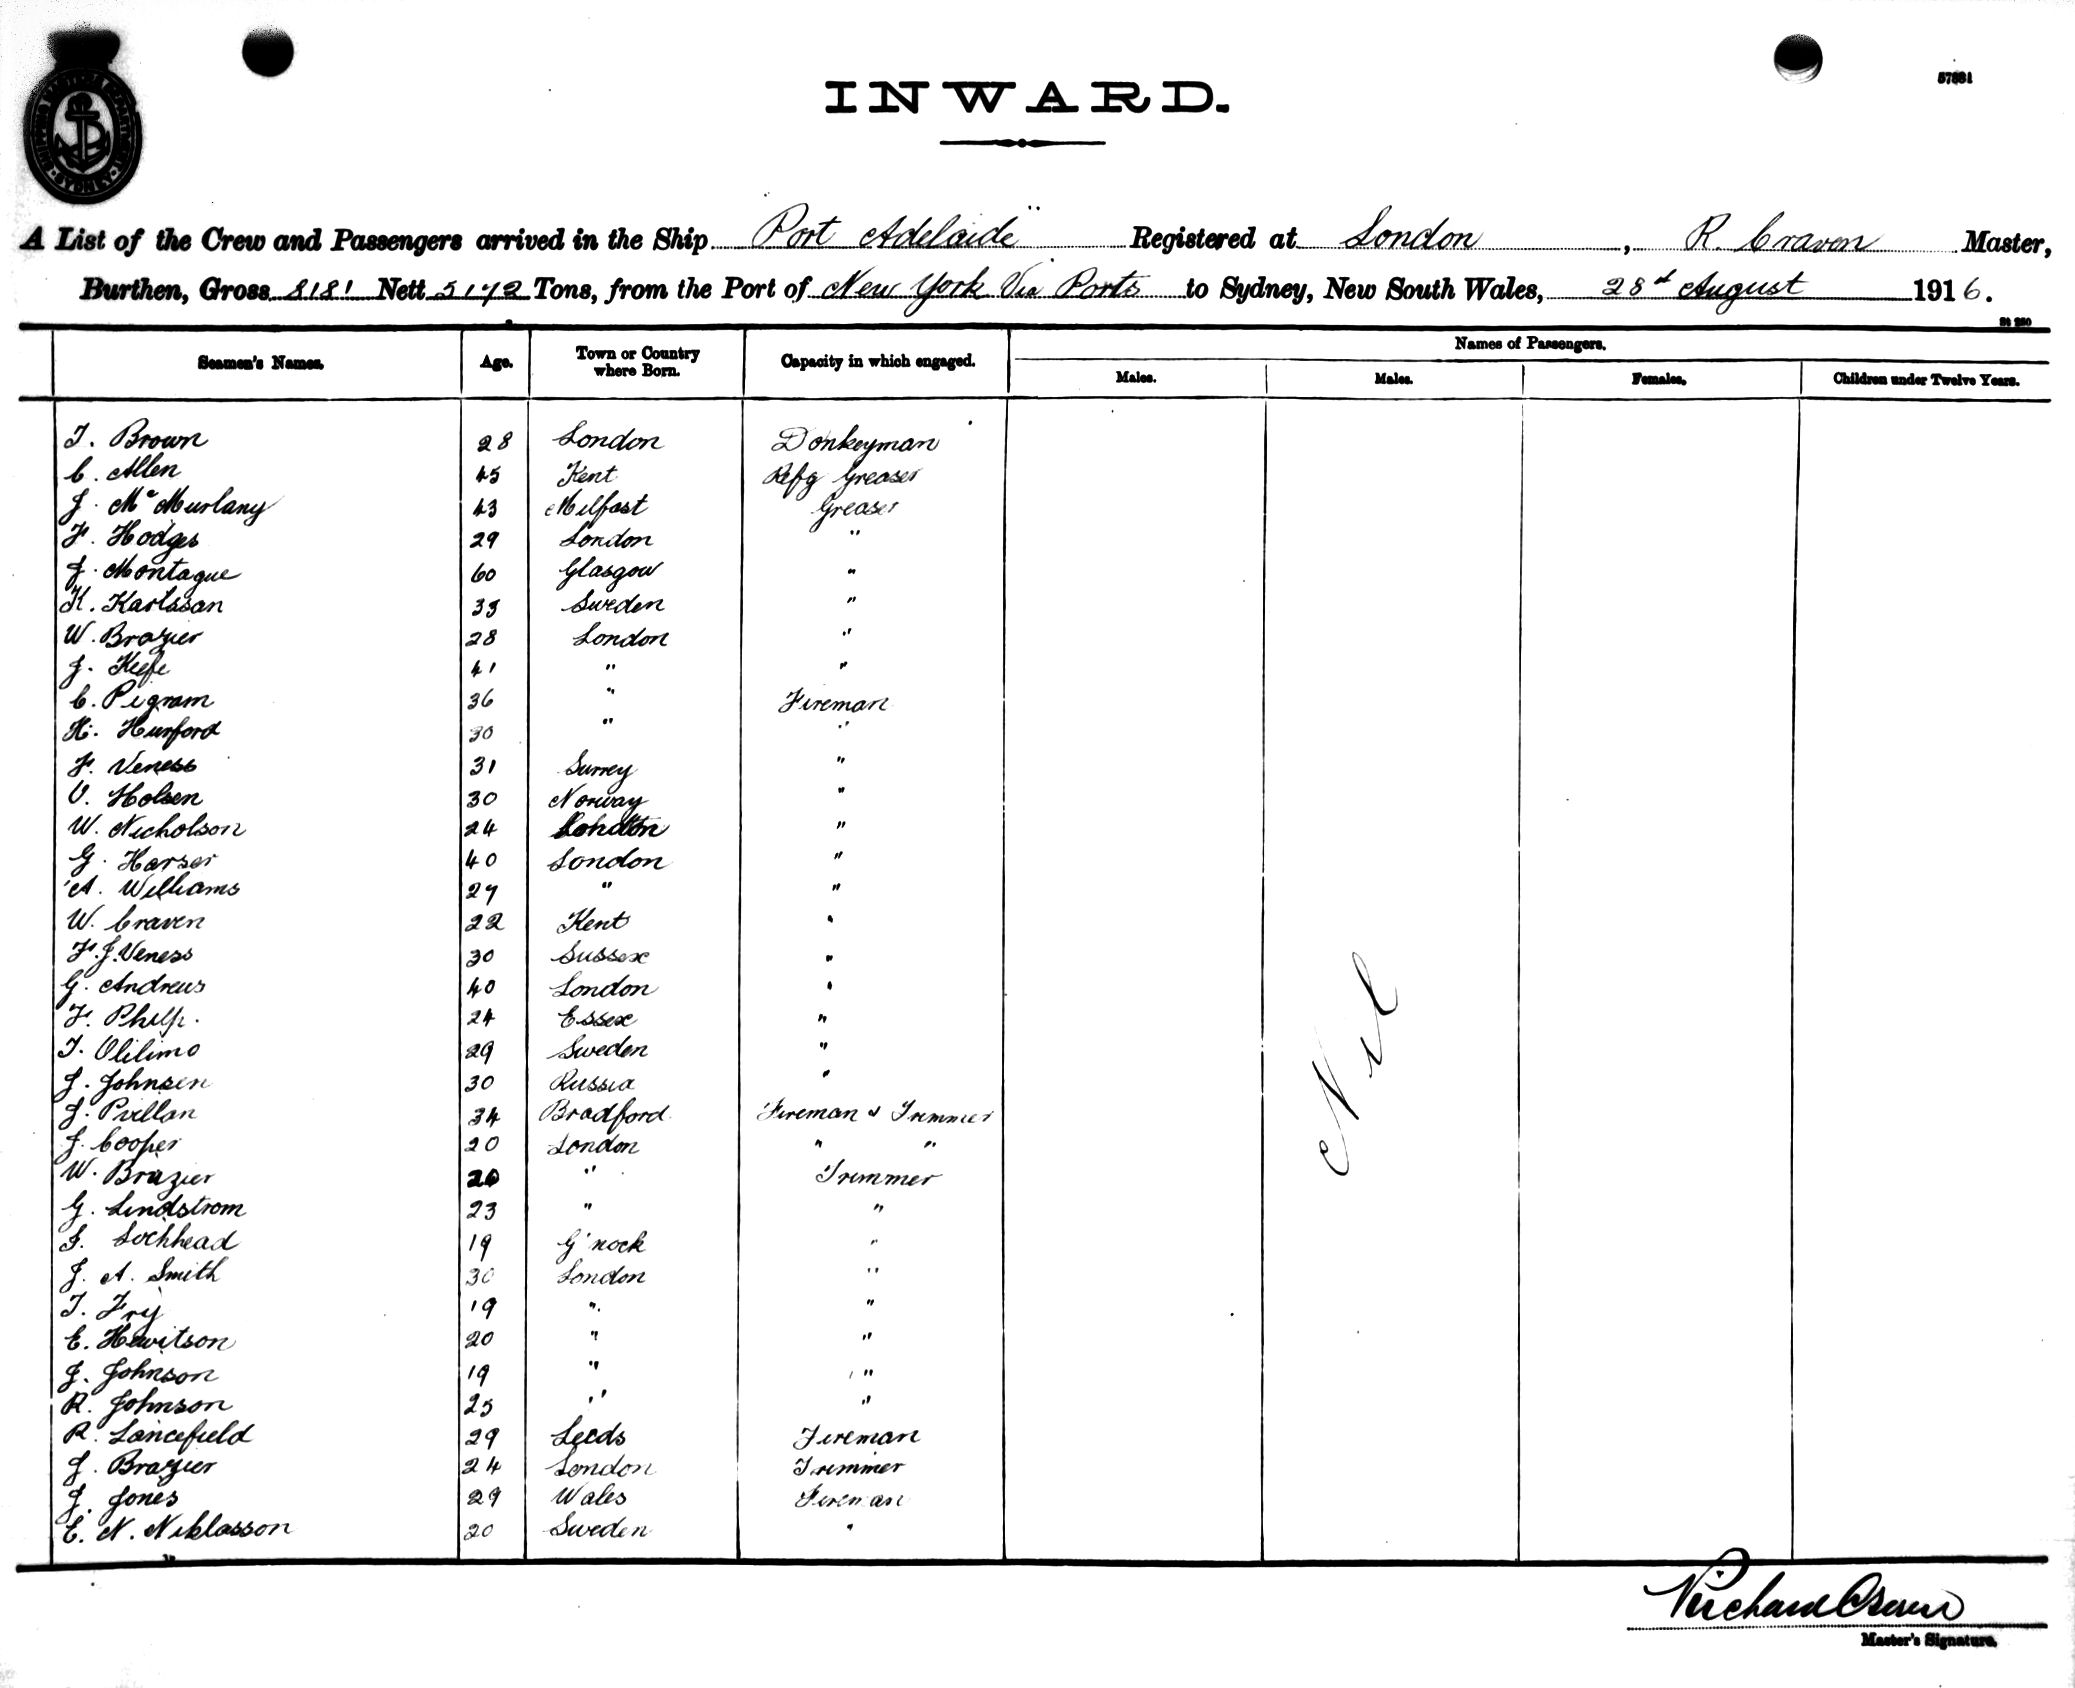 57981
INWARD.
A List of the Crew and Passengers arrived in the Ship Port Adelaide Registered at London, R. Craven Master,
Burthen, Gross 8181 Nett 5172 Tons, from the Port of New York Via Ports to Sydney, New South Wales, 28th August 1916.
St 250
Seamen's Names. Age. Town or Country where Born. Capacity in which engaged. Names of Passengers.
Males. Males. Females. Children under Twelve Years.
T. Brown 28 London Donkeyman
C. Allen 45 Kent Refg Greaser
J. McMurlany 43 Melfast Greaser
F. Hodges 29 London "
J. Montague 60 Glasgow "
K. Karlssan 33 Sweden "
W. Brazier 28 London "
J. Keefe 41 " "
C. Pegram 36 " Fireman
H. Hurford 30 " "
F. Veness 31 Surrey "
O. Holsen 30 Norway "
W. Nicholson 24 London "
G. Harser 40 London "
A. Williams 27 " "
W. Craven 22 Kent "
F. J. Veness 30 Sussex "
G. Andrews 40 London "
F. Philp. 24 Essex "
T. Olilimo 29 Sweden "
J. Johnsen 30 Russia "
J. Pullan 34 Bradford Fireman & Trimmer
J. Cooper 20 London " "
W. Brazier 20 " Trimmer
G. Lindstrom 23 " "
J. Lochhead 19 G'nock "
J. A. Smith 30 London "
T. Fry 19 " "
E. Hewitson 20 " "
J. Johnson 19 " "
R. Johnson 25 " "
R. Lancefield 29 Leeds Fireman
J. Brazier 24 London Trimmer
J. Jones 29 Wales Fireman
E. N. Niklasson 20 Sweden "
Nil
Richard Craven
Master's Signature.